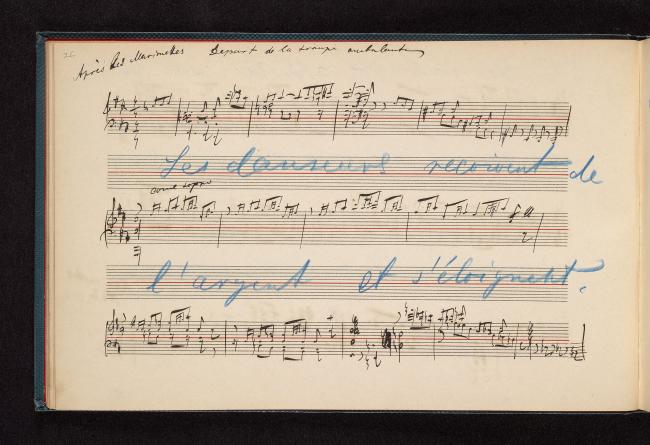 26
Après les Marionettes Départ de la troupe ambulante
Les danseurs reçoivent de
come sopra
l'argent et s'éloignent.